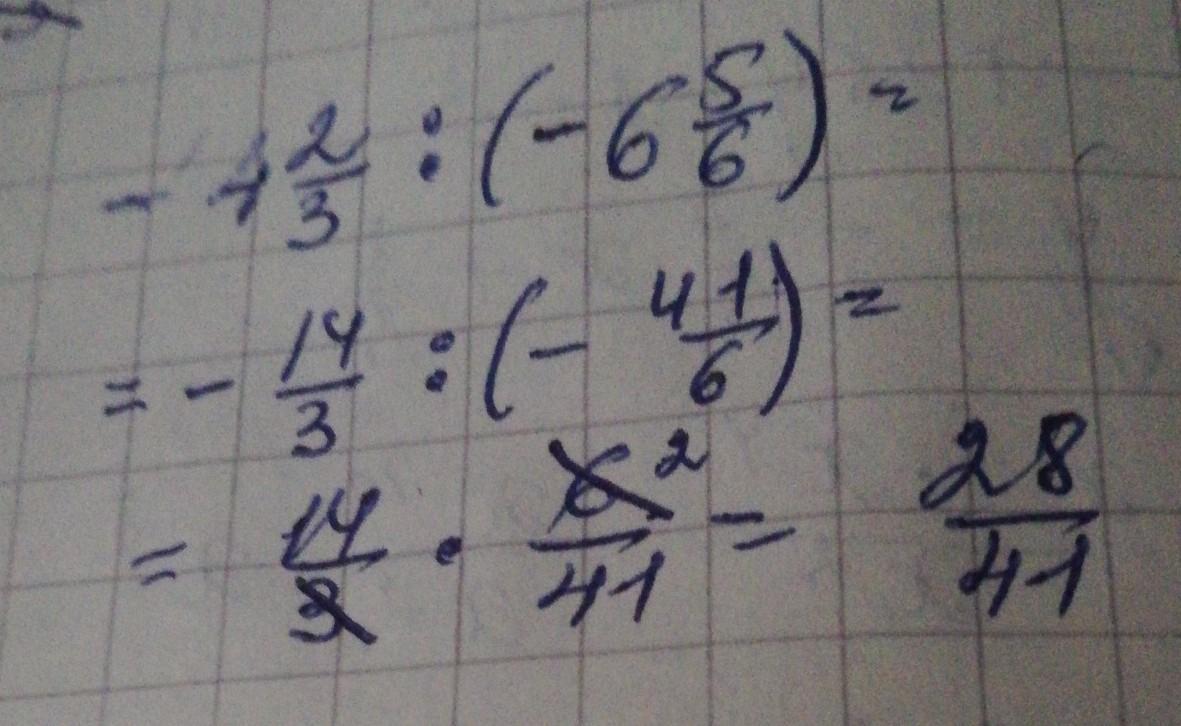 - 4 2/3 : (- 6 5/6) =
= - 14/3 : (- 41/6) =
= 14/3 · 6/41 2 = 28/41